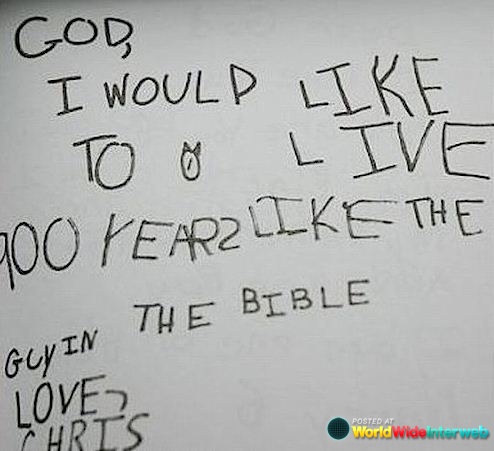 GOD,
I WOULD LIKE
TO LIVE
900 YEARS LIKE THE
GUY IN THE BIBLE
LOVE,
CHRIS
POSTED AT
WorldWideInterweb